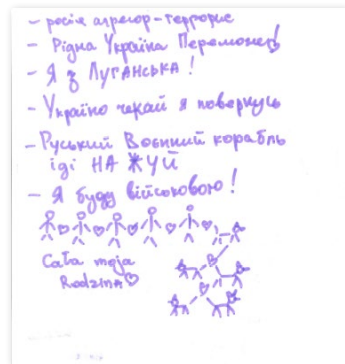 - росія агресор-терорис
- Рідна Україна Переможеть!
- Я з Луганська!
- Україно чекай я повернусь
- Руський Воєнний корабль
іді НА ЖУЙ
- Я буду військовою!
Cała moja
Rodzina